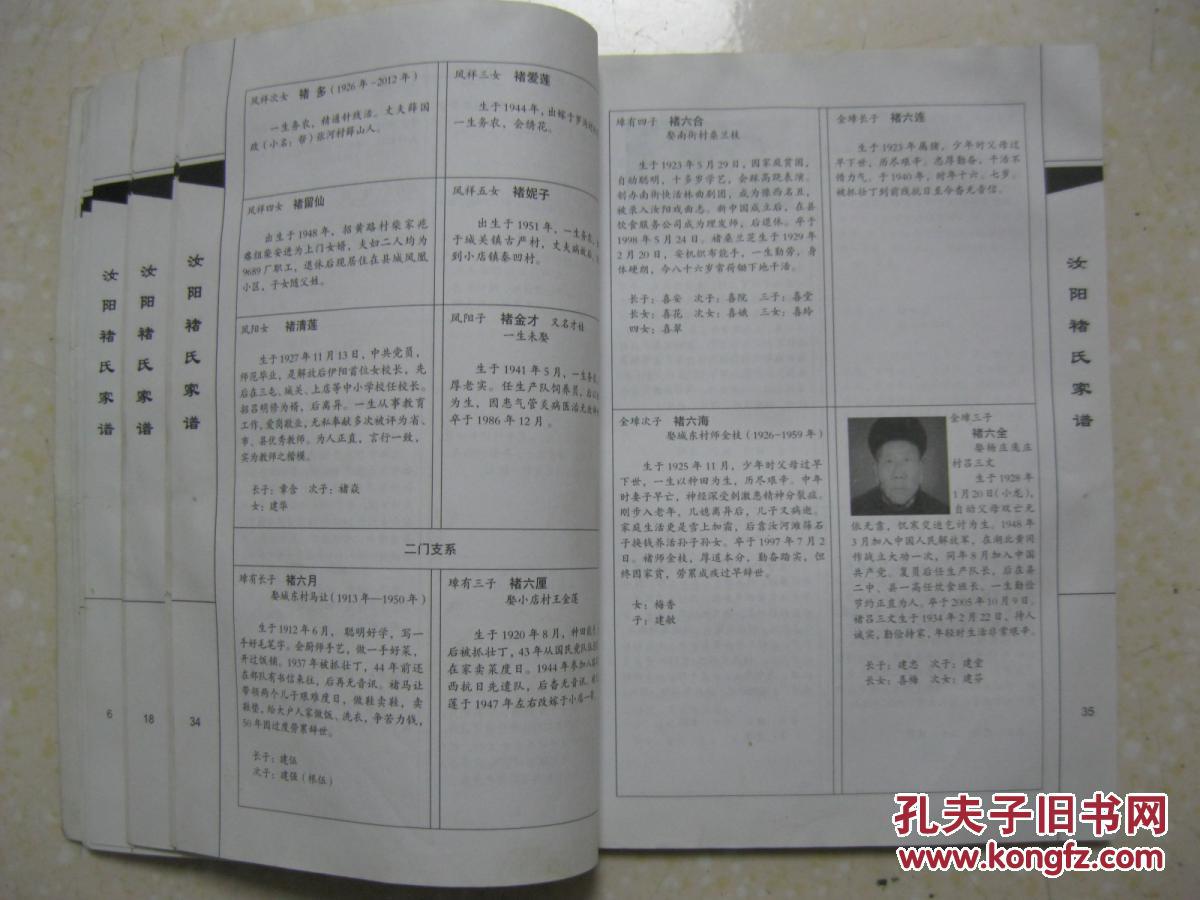 汝阳褚氏家谱
6
汝阳褚氏家谱
18
汝阳褚氏家谱
34
凤祥次女 褚 多(1926年-2012年)
一生务农,精通针线活。丈夫薛国
政(小名:帮)张河村薛山人。
凤祥三女 褚爱莲
生于1944年,出嫁于罗
一生务农,会绣花。
凤祥四女 褚留仙
出生于1948年,招黄路村柴家兆
柴安进为上门女婿,夫妇二人均为
9689厂职工,退休后现居住在县城凤凰
小区,子女随父姓。
凤祥五女 褚妮子
出生于1951年,一生务
于城关镇古严村,丈夫病故
到小店镇秦凹村。
凤阳女 褚清莲
生于1927年11月13日,中共党员,
师范毕业,是解放后伊阳首位女校长,先
后在三屯、城关、上店等中小学校任校长。
招吕明修为婿,后离异。一生从事教育
工作,爱岗敬业,无私奉献多次被评为省、
市、县优秀教师。为人正直,言行一致,
实为教师之楷模。
长子:章含 次子:褚焱
女:建华
凤阳子 褚金才 又名才娃
一生未娶
生于1941年5月,一生务农,
厚老实。任生产队饲养员,后
为生,因患气管炎病医治无效
卒于1986年12月。
二门支系
璋有长子 褚六月
娶城东村马让(1913年—1950年)
生于1912年6月,聪明好学,写一
手好毛笔字。会厨师手艺,做一手好菜,
开过饭铺。1937年被抓壮丁,44年前还
在部队有书信来往,后再无音讯。褚马让
带领两个儿子艰难度日,做鞋卖鞋,卖
鞋垫,给大户人家做饭、洗衣,争苦力钱,
50年因过度劳累辞世。
长子:建伍
次子:建强(根伍)
璋有三子 褚六厘
娶小店村王金莲
生于1920年8月,种田
后被抓壮丁,43年从国民党队伍
在家卖菜度日。1944年参加八路
西抗日先遣队,后杳无音讯。
莲于1947年左右改嫁于小店一
璋有四子 褚六合
娶南街村桑兰枝
生于1923年5月29日,因家庭贫困,
自幼聪明,十多岁学艺,会踩高跷表演。
创办南街快活林曲剧团,成为豫西名丑,
被录入汝阳戏曲志。新中国成立后,在县
饮食服务公司成为理发师,后退休。卒于
1998年5月24日。褚桑兰芝生于1929年
2月20日,安机织布能手,一生勤劳,身
体硬朗,今八十六岁常荷锄下地干活。
长子:喜安 次子:喜院 三子:喜堂
长女:喜花 次女:喜娥 三女:喜玲
四女:喜翠
金璋长子 褚六连
生于1923年属猪,少年时父母过
早下世,历尽艰辛。忠厚勤奋,干活不
惜力气。于1940年,时年十六、七岁。
被抓壮丁到前线抗日至今杳无音信。
金璋次子 褚六海
娶城东村师金枝(1926-1959年)
生于1925年11月,少年时父母过早
下世,一生以种田为生,历尽艰辛。中年
时妻子早亡,神经深受刺激患精神分裂症。
刚步入老年,儿媳离异后,儿子又病逝。
家庭生活更是雪上加霜,后靠汝河滩筛石
子换钱养活孙子孙女。卒于1997年7月2
日。褚师金枝,厚道本分,勤奋踏实,但
终因家贫,劳累成疾过早辞世。
女:梅香
子:建敏
金璋三子
褚六全
娶杨庄庞庄
村吕三文
生于1928年
1月20日(小龙),
自幼父母双亡无
依无靠,饥寒交迫乞讨为生。1948年
3月加入中国人民解放军,在湖北黄冈
作战立大功一次,同年8月加入中国
共产党。复员后任生产队长,后在县
二中、县一高任炊食班长,一生勤俭
节约正直为人。卒于2005年10月9日。
褚吕三文生于1934年2月22日,待人
诚实,勤俭持家,年轻时生活非常艰辛。
长子:建忠 次子:建堂
长女:喜梅 次女:建芬
汝阳褚氏家谱
35
孔夫子旧书网
www.kongfz.com